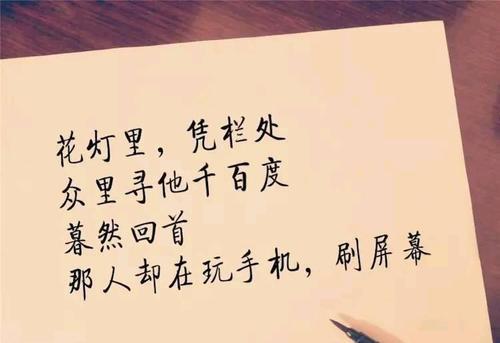 花灯里，凭栏处
众里寻他千百度
暮然回首
那人却在玩手机，刷屏幕